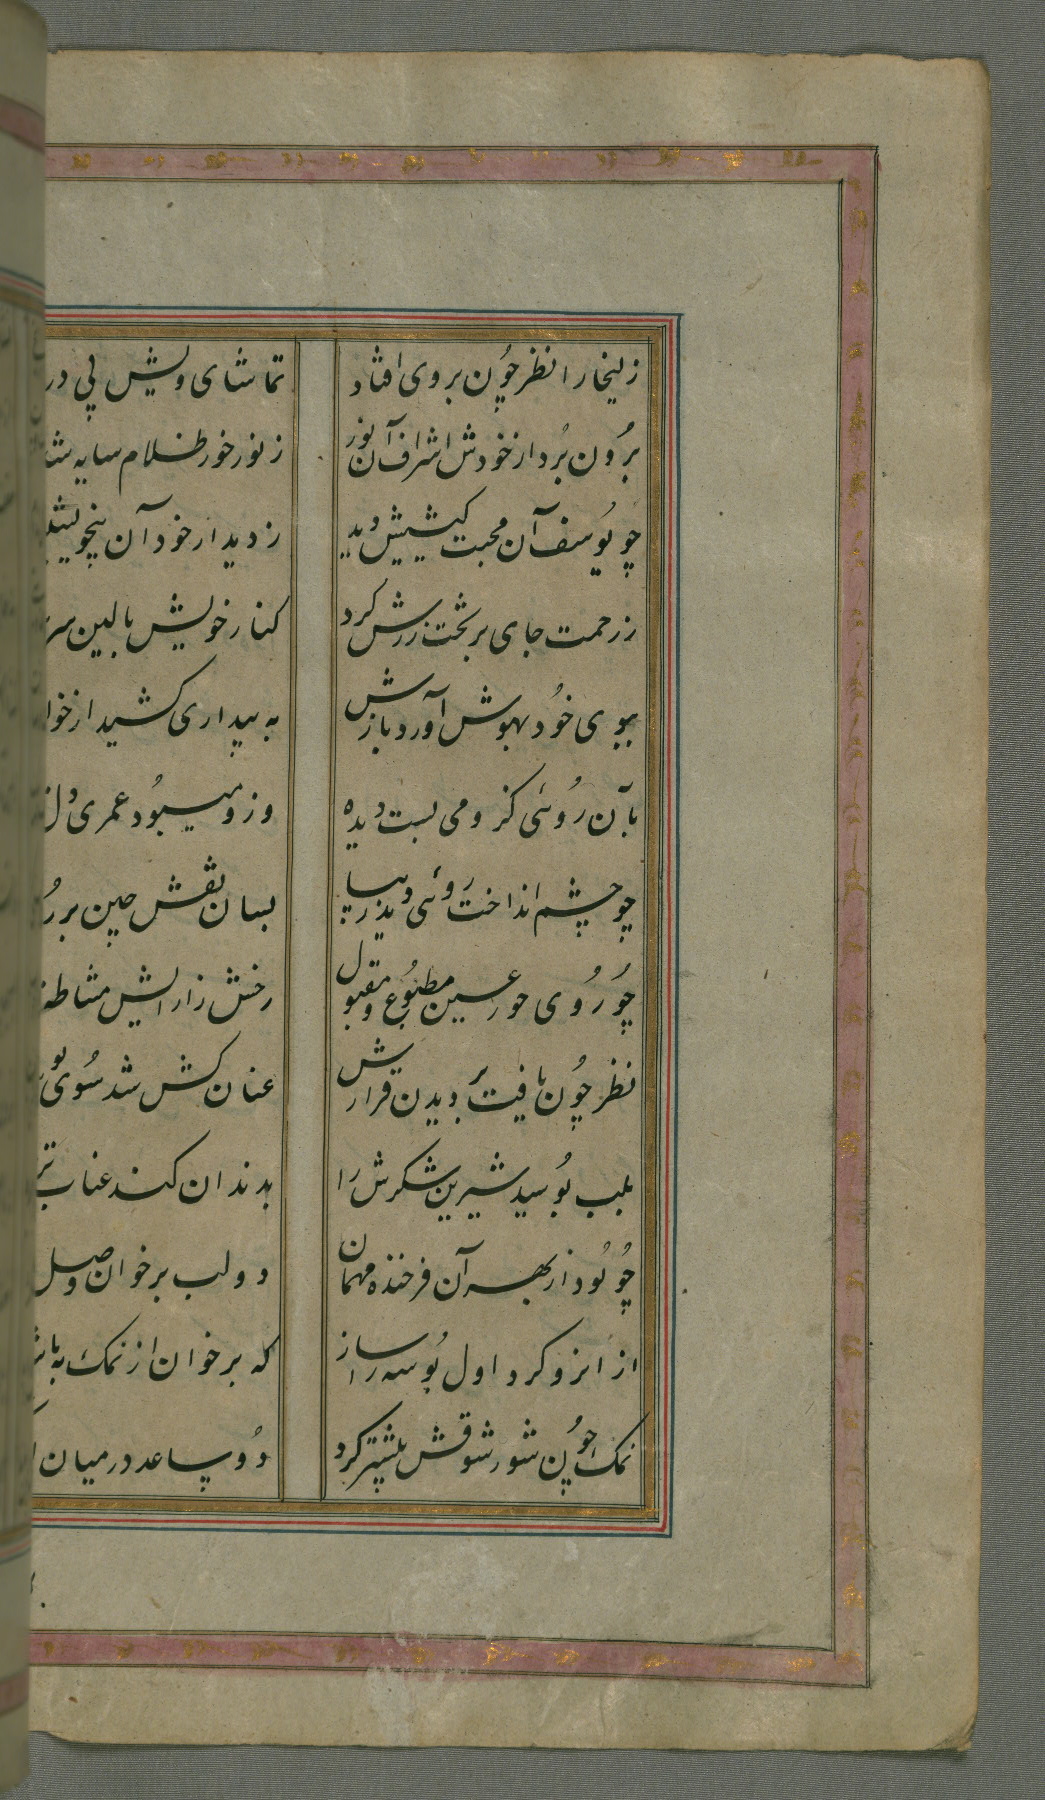 زلیخا را نظر چون بر وی افتاد تماشای ویش پی در
برون برد از خودش اشراف آن نور ز نور خور ظلام سایه شد
چو یوسف آن محبت کیشیش دید ز دیدار خود آن بیخویشیش
ز رحمت جای بر تخت زرش کرد کنار خویش بالین سر
ببوی خود بهوش آورد بازش به بیداری کشید از خواب
بآن روئی کزو می بست دیده وزو میبود عمری دل
چو چشم انداخت روئی دید زیبا بسان نقش چین بر
چو روی حور عین مطبوع و مقبول رخش ز آرایش مشاطه
نظر چون یافت بر دیدن قرارش عنان کش شد سوی بو
بلب بوسید شیرین شکرش را بدندان کند عناب تر
چو بود از بهر آن فرخنده مهمان دو لب بر خوان وصل
از انرو کرد اول بوسه را ساز که بر خوان از نمک به باشد
نمک چون شور شوقش بیشتر کرد دو ساعد در میان